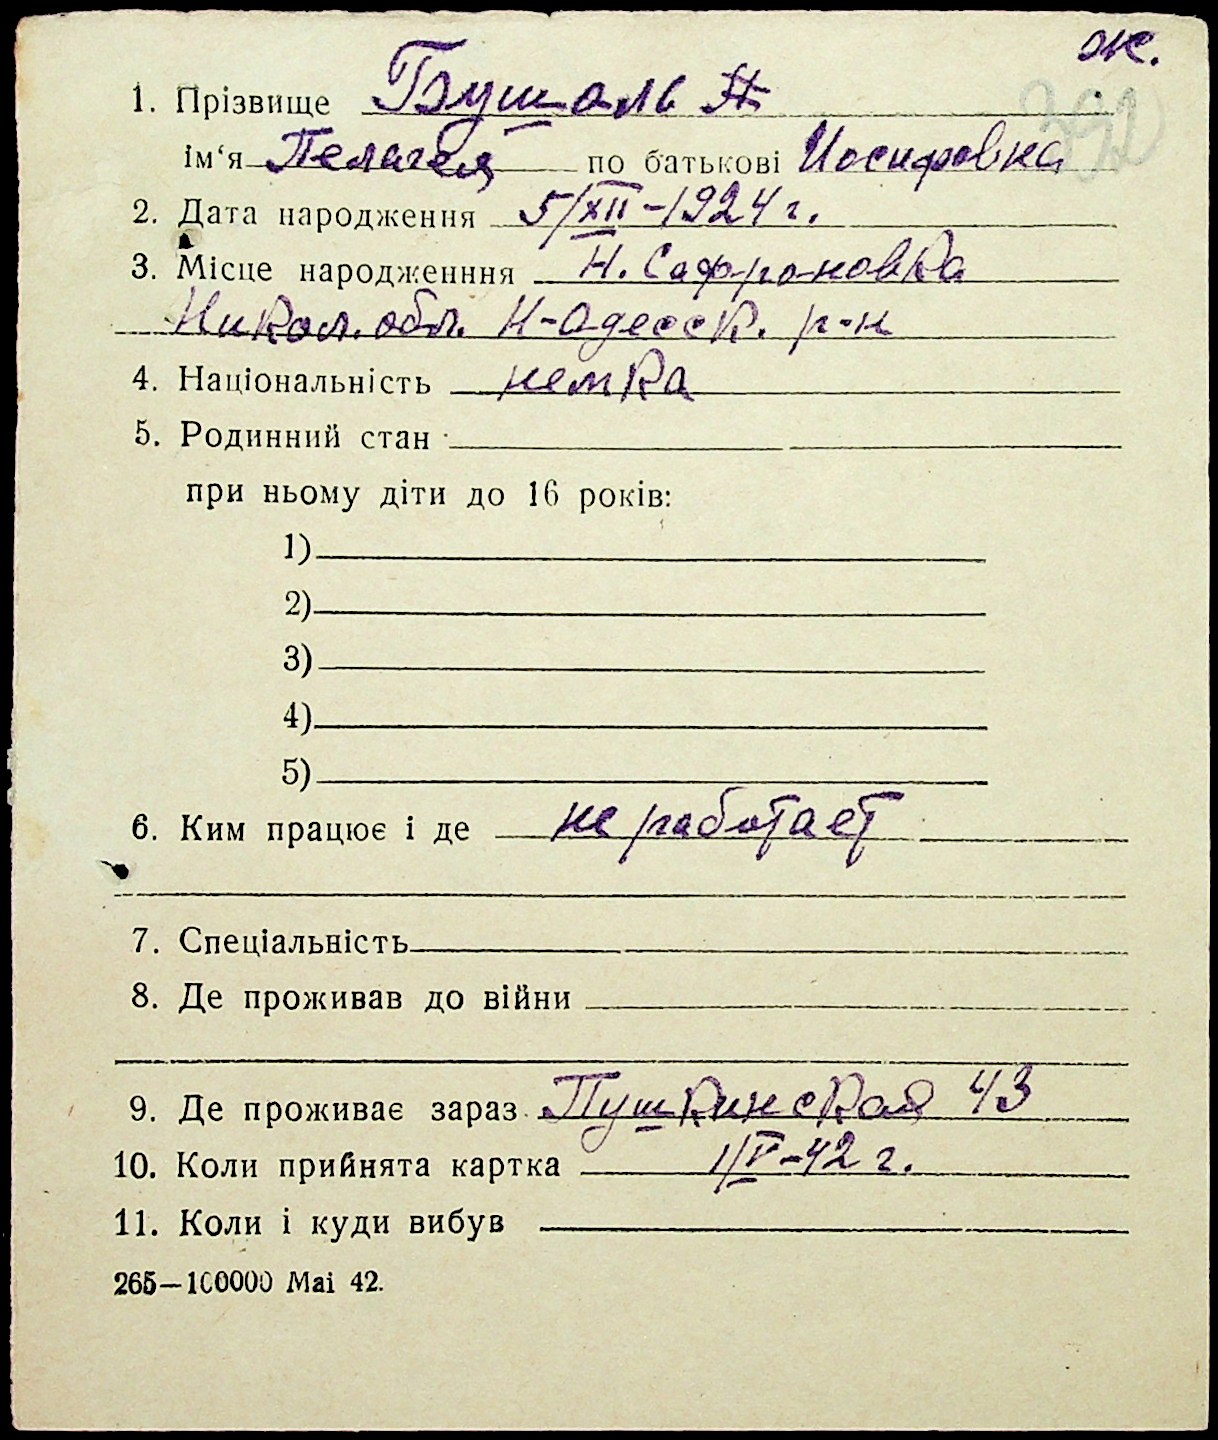 ж.
1. Прізвище Бушаль
ім‘я Пелагея по батькові Иосифовна
2. Дата народження 5/XII-1924 г.
3. Місце народженння Н. Сафроновка
Никол. обл. Н-Одесск. р-н
4. Національність немка
5. Родинний стан
при ньому діти до 16 років:
1)
2)
3)
4)
5)
6. Ким працює і де не работает
7. Спеціальність
8. Де проживав до війни
9. Де проживає зараз Пушкинская 43
10. Коли прийнята картка 1/V-42 г.
11. Коли і куди вибув
265—100000 Mai 42.